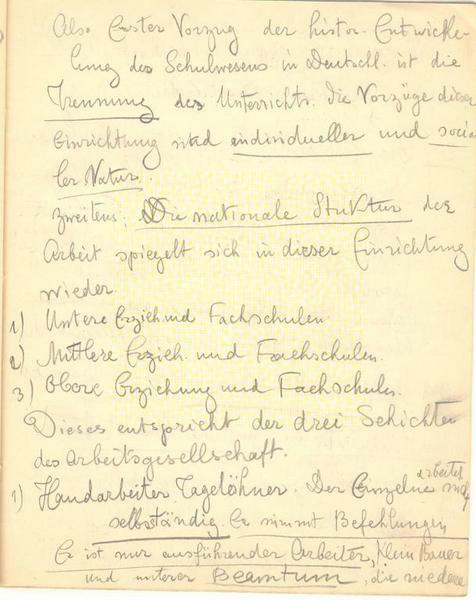 Also Erster Vorzug der histor. Entwicke-
lung des Schulwesens in Deutschl. ist die
Trennung des Unterrichts. Die Vorzüge dieser
Einrichtung sind individueller und socia
ler Natur.
Zweitens: Die nationale Struktur der
Arbeit spiegelt sich in dieser Einrichtung
wieder.
1) Untere Erzieh und Fachschulen
2) Mittlere Erzieh. und Fachschulen.
3) Obere Erziehung und Fachschuln.
Dieses entspricht der drei Schichten
des Arbeitsgesellschaft.
1) Handarbeiter, Tagelöhner. Der Einzelne arbeitet
selbsständig. Er nimmt Befehlungen
Er ist nur ausführender Arbeiter, Klein Bauer
und unterer Beamtum, die niedere